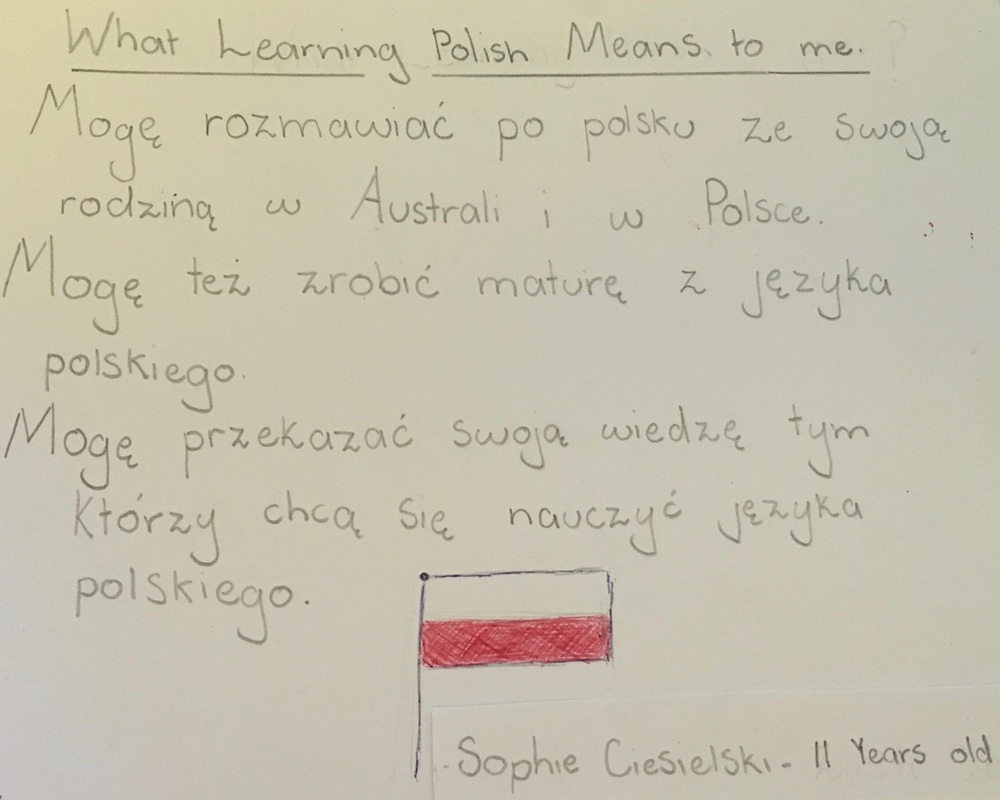 What Learning Polish Means to me.
Mogę rozmawiać po polsku ze swoją
rodziną w Australi i w Polsce.
Mogę też zrobić maturę z języka
polskiego.
Mogę przekazać swoją wiedzę tym
którzy chcą się nauczyć języka
polskiego.
Sophie Ciesielski - 11 Years old